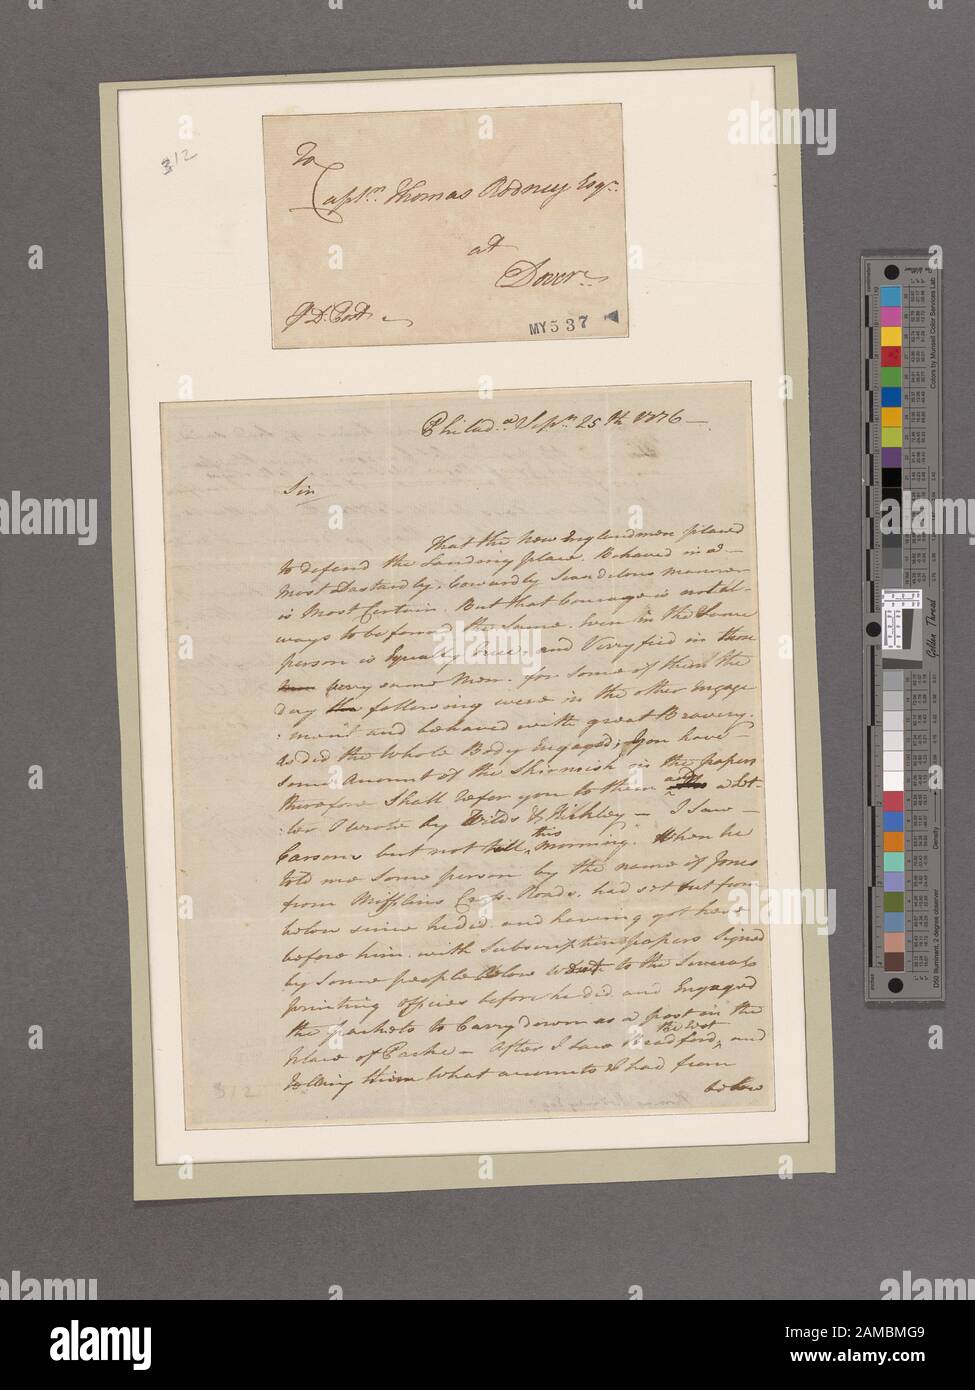 312
To
Captn. Thomas Rodney Esqr.
at
Dover
P D. Post
MY537
Philada. Sepr. 25th 1776
Sir
That the New Englandmen placed
to defend the Landing place, Behaved in a
Most Dastardly, Cowardly Scandelous manner
is Most Certain, But that Courage is not al-
ways to be found the Same, even in the Same
person is Equally true, and Verryfied in those
very same Men. for some of them the
day following were in the other Engage
:ment and behaved with great Bravery.
as did the Whole Body Engaged; you have
some Account of the Skirmish in the papers
therefore Shall refer you to them and a Let-
:ter I wrote by Wilds & Kirkley – I saw
Parson but not till this Morning. When he
told me some person by the name of Jones
from Mifflins Cross-Roads, had set out from
below since he did and having got here
before him, with Subscription papers Signed
by some people below went to the Several
printing offices before he did and Engaged
the packets to Carry down as a post in the
place of Parke – After I saw Bradford, the rest and
Telling them What accounts I had from
below
312
Golden Thread
D50 Illuminant, 2 degree observer
Density
Colors by Munsell Color Services Lab
alamy
Image ID: 2AMBMG9
www.alamy.com